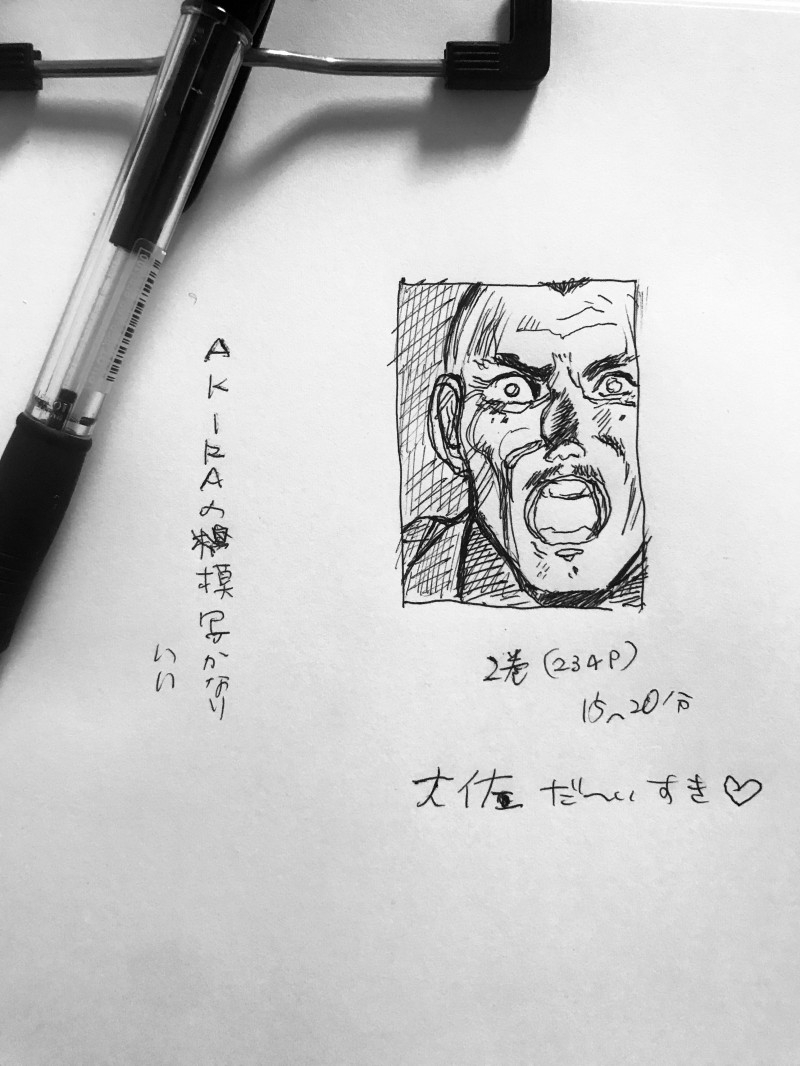 AKIRAの模写かなり
いい
2巻(234P)
15〜20分
大佐 だ〜いすき♡